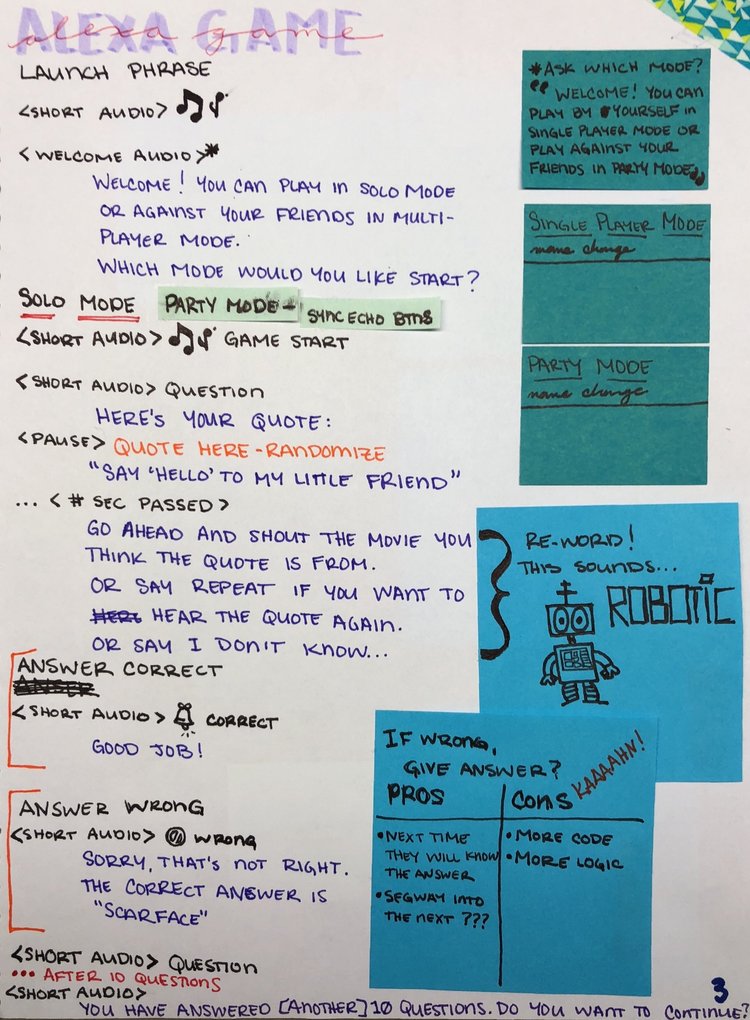 ALEXA GAME
alexa game
LAUNCH PHRASE
<SHORT AUDIO>
<WELCOME AUDIO>*
WELCOME! YOU CAN PLAY IN SOLO MODE
OR AGAINST YOUR FRIENDS IN MULTI-
PLAYER MODE.
WHICH MODE WOULD YOU LIKE START?
SOLO MODE PARTY MODE - SYNC ECHO BTNS
<SHORT AUDIO> GAME START
<SHORT AUDIO> QUESTION
HERE'S YOUR QUOTE:
<PAUSE> QUOTE HERE - RANDOMIZE
"SAY 'HELLO' TO MY LITTLE FRIEND"
... <# SEC PASSED>
GO AHEAD AND SHOUT THE MOVIE YOU
THINK THE QUOTE IS FROM.
OR SAY REPEAT IF YOU WANT TO
HERE HEAR THE QUOTE AGAIN.
OR SAY I DON'T KNOW...
ANSWER CORRECT
ANSER
<SHORT AUDIO> CORRECT
GOOD JOB!
ANSWER WRONG
<SHORT AUDIO> WRONG
SORRY, THAT'S NOT RIGHT.
THE CORRECT ANSWER IS
"SCARFACE"
<SHORT AUDIO> QUESTION
... AFTER 10 QUESTIONS
<SHORT AUDIO>
YOU HAVE ANSWERED [ANOTHER] 10 QUESTIONS. DO YOU WANT TO CONTINUE?
3
*ASK WHICH MODE?
"WELCOME! YOU CAN
PLAY BY YOURSELF IN
SINGLE PLAYER MODE OR
PLAY AGAINST YOUR
FRIENDS IN PARTY MODE"
SINGLE PLAYER MODE
name change
PARTY MODE
name change
RE-WORD!
THIS SOUNDS...
ROBOTIC
IF WRONG,
GIVE ANSWER?
KAAAAHN!
PROS
• NEXT TIME
THEY WILL KNOW
THE ANSWER
• SEGWAY INTO
THE NEXT ???
CONS
• MORE CODE
• MORE LOGIC